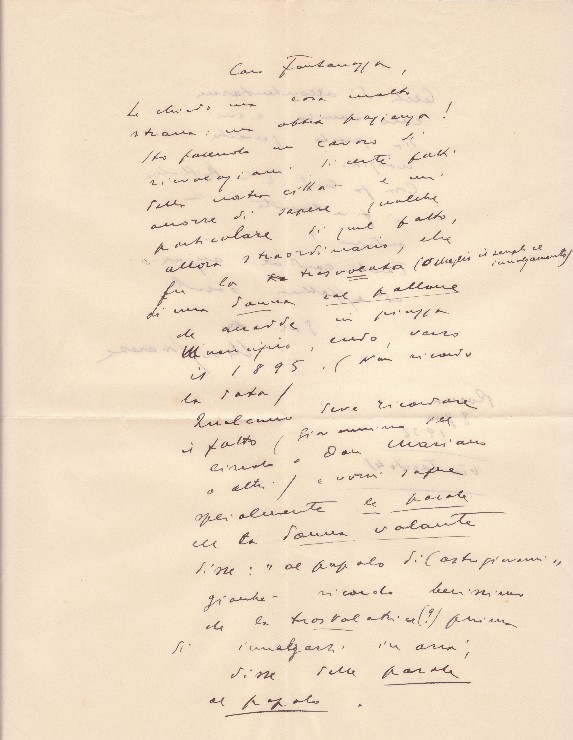 Caro Fontanazza,
Le chiedo una cosa molto
strana: ma abbia pazienza!
Sto facendo un lavoro di
rievocazioni di certi fatti
della nostra città e mi
occorre di sapere qualche
particolare di quel fatto,
allora straordinario, che
fu la trasvolata (o meglio il semplice innalzamento)
di una donna col pallone
che accadde in piazza
Municipio, credo, verso
il 1895. (Non ricordo
la data)
Qualcuno deve ricordare
il fatto (Giovannino del
circolo o Don Mariano
o altri) e vorrei sapere
specialmente le parole
che la donna volante
disse: "al popolo di Castrogiovanni"
giacché ricordo benissimo
che la trasvolatrice (?) prima
di innalzarsi in aria,
disse delle parole
al popolo.